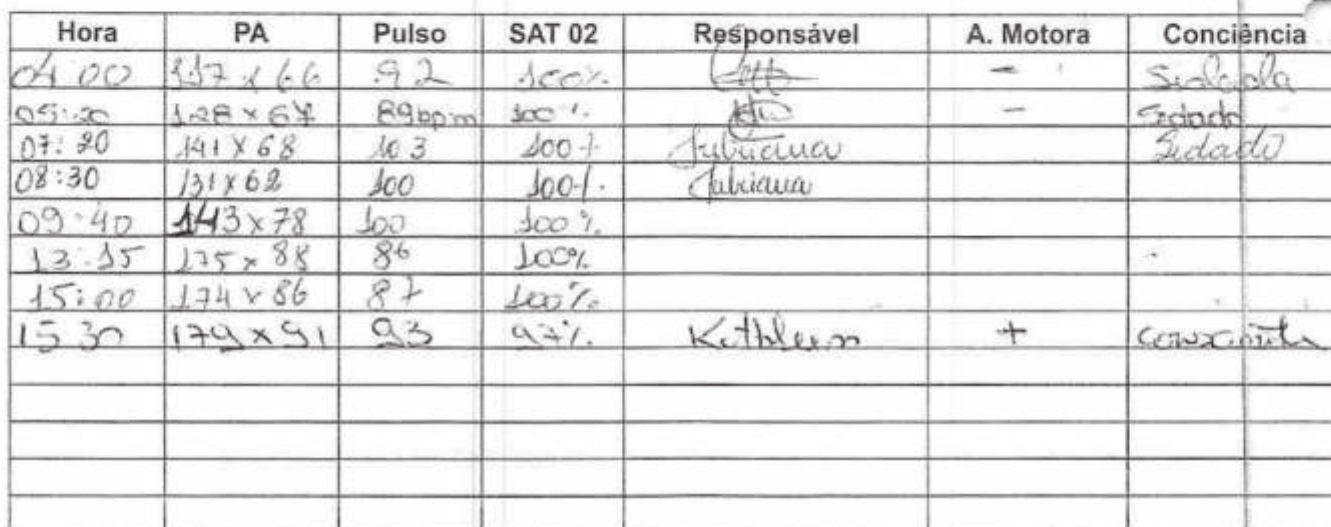 Hora PA Pulso SAT 02 Responsável A. Motora Conciência
04:00 117 x 66 92 100% - Sedada
05:20 128 x 67 89bpm 100% - Sedado
07:20 141 x 68 103 100% Fabriciana Sedado
08:30 131 x 62 100 100% Fabriciana
09:40 143 x 78 100 100%
13:15 175 x 88 86 100%
15:00 174 x 86 87 100%
15:30 179 x 91 93 97% Kathleen + consciente